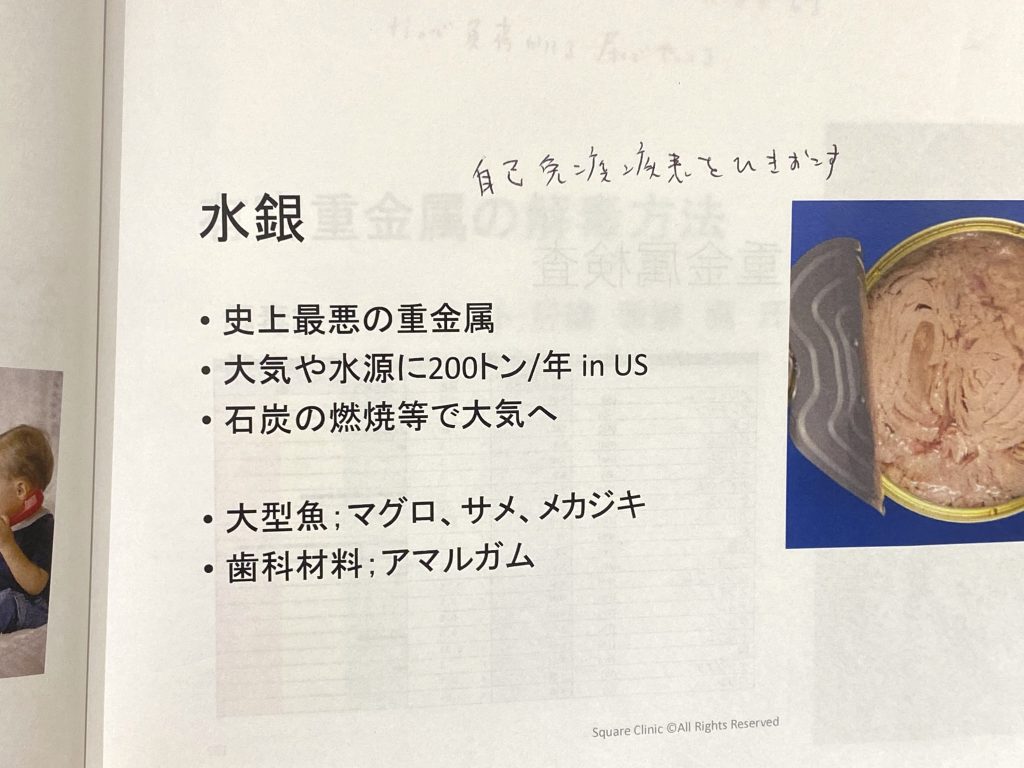 自己免疫疾患をひきおこす
水銀
• 史上最悪の重金属
• 大気や水源に200トン/年 in US
• 石炭の燃焼等で大気へ
• 大型魚;マグロ、サメ、メカジキ
• 歯科材料;アマルガム
Square Clinic ©All Rights Reserved